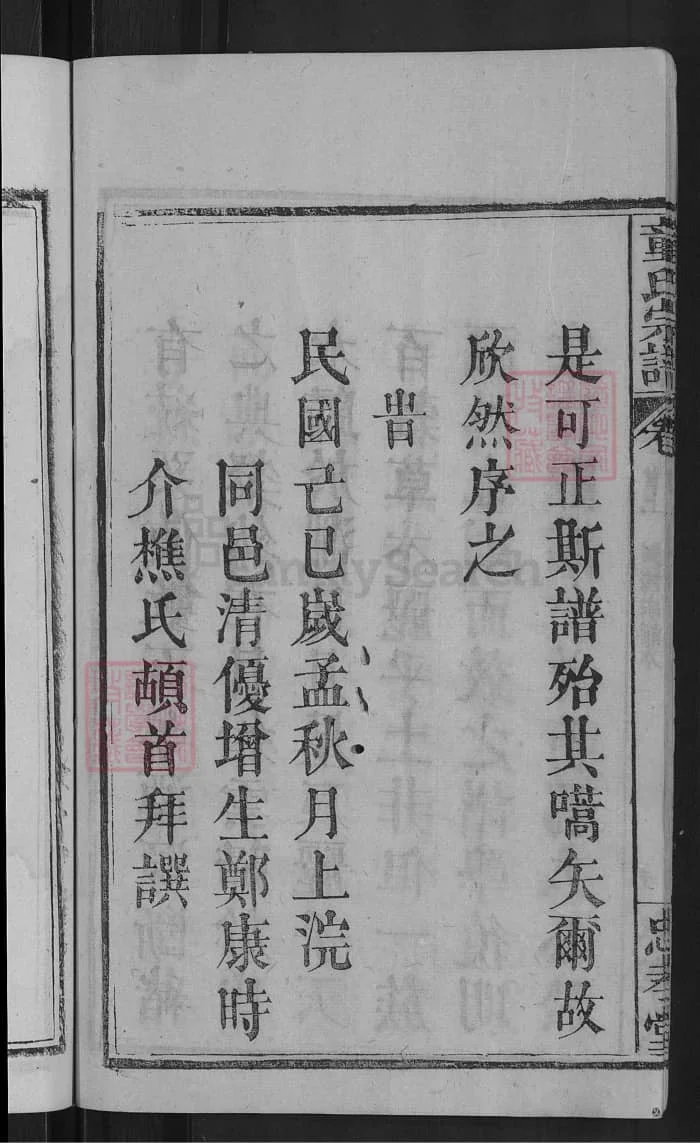 童氏宗譜 卷
忠孝堂
是可正斯譜殆其嚆矢爾故
欣然序之
旹
民國己巳歲孟秋月上浣
同邑清優增生鄭康時
介樵氏頓首拜譔